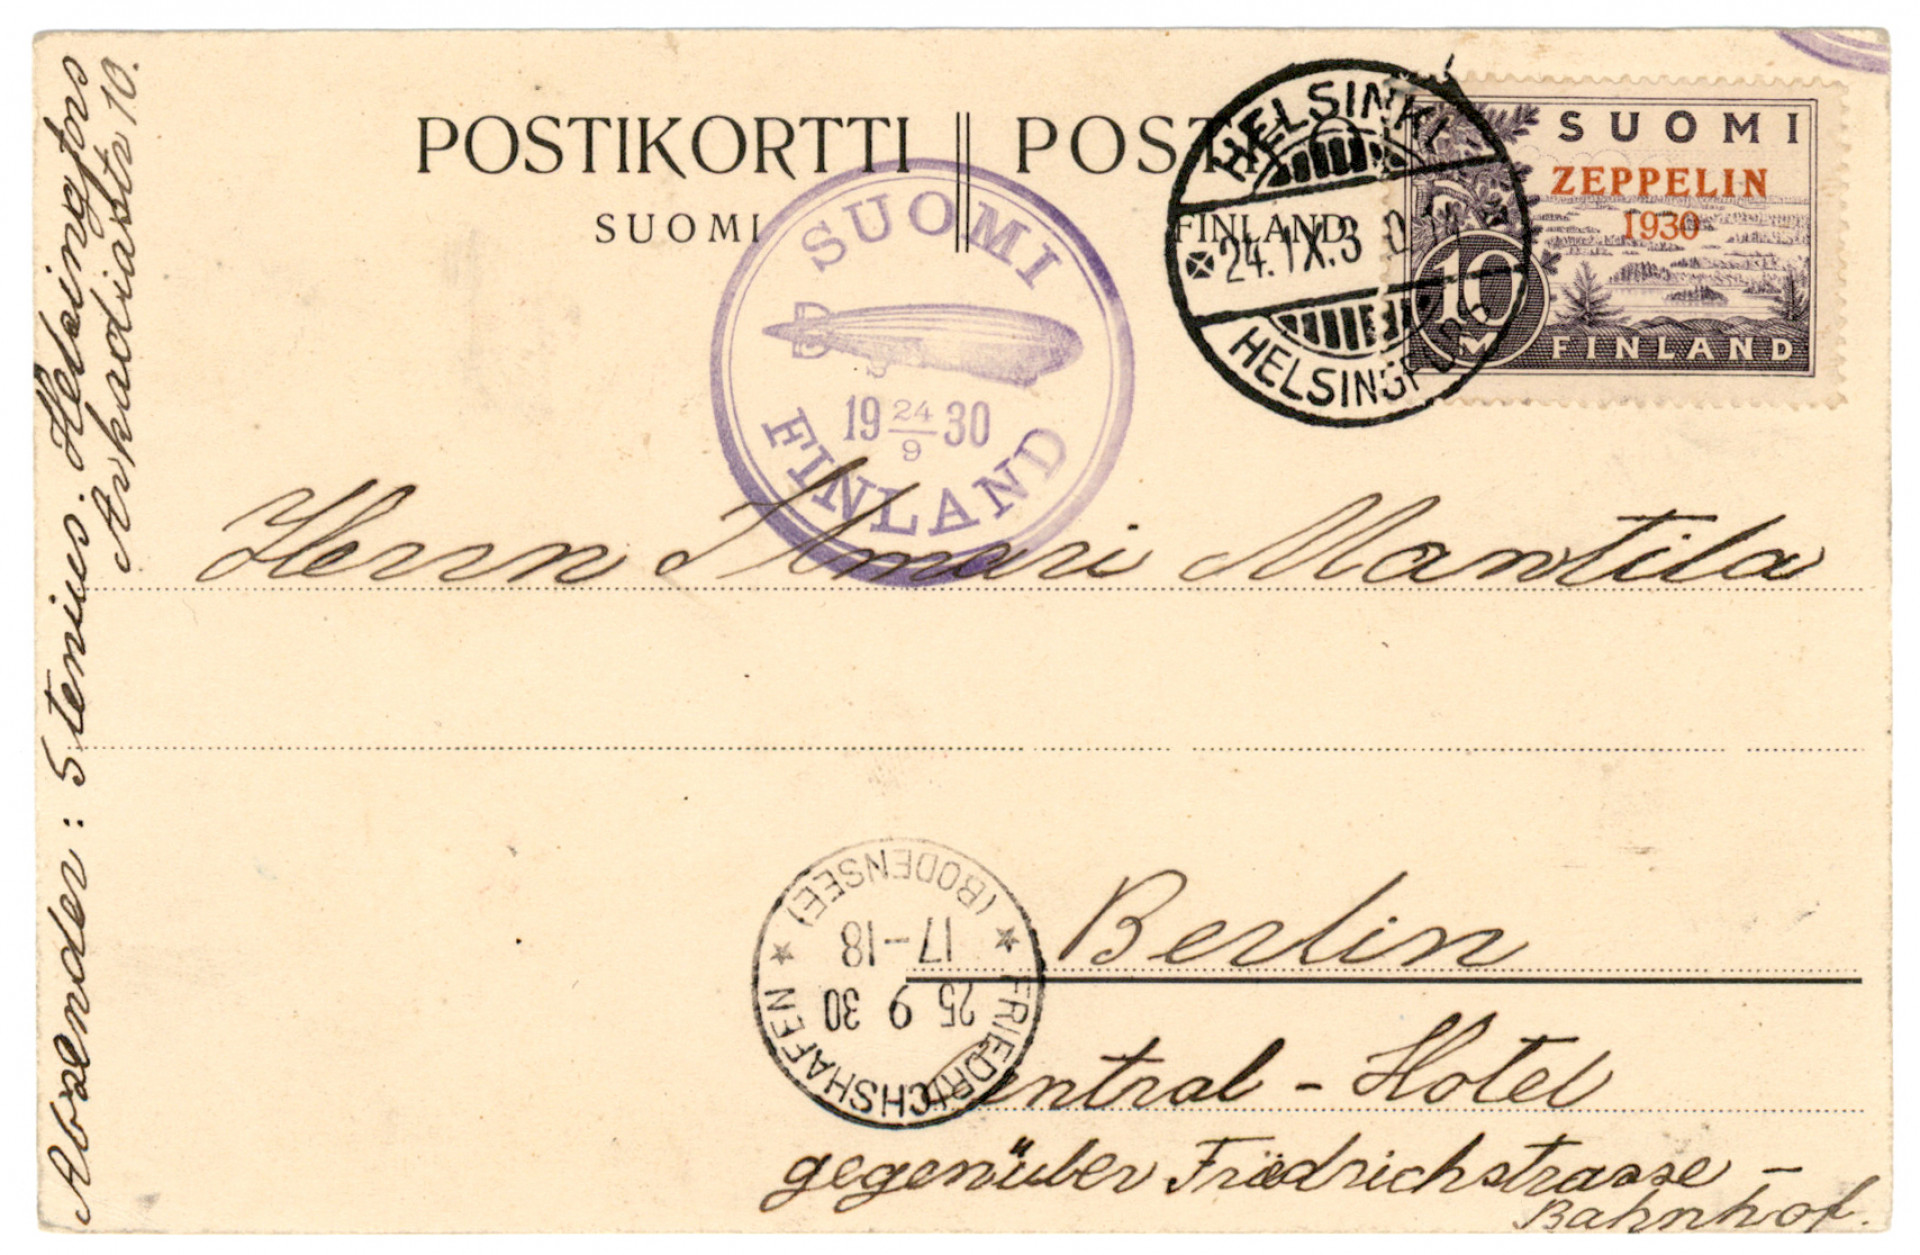 POSTIKORTTI
SUOMI
POST
FINLAND
SUOMI
19 24/9 30
FINLAND
HELSINKI
24.IX.30
HELSINGFORS
SUOMI
ZEPPELIN
1930
10
M
FINLAND
Herrn Ilmari Mantila
Berlin
Central-Hotel
gegenüber Friedrichstrasse-
Bahnhof.
FRIEDRICHSHAFEN
25 9 30
17-18
(BODENSEE)
Absender: Stenius. Helsingfors
Arkadiastr 10.